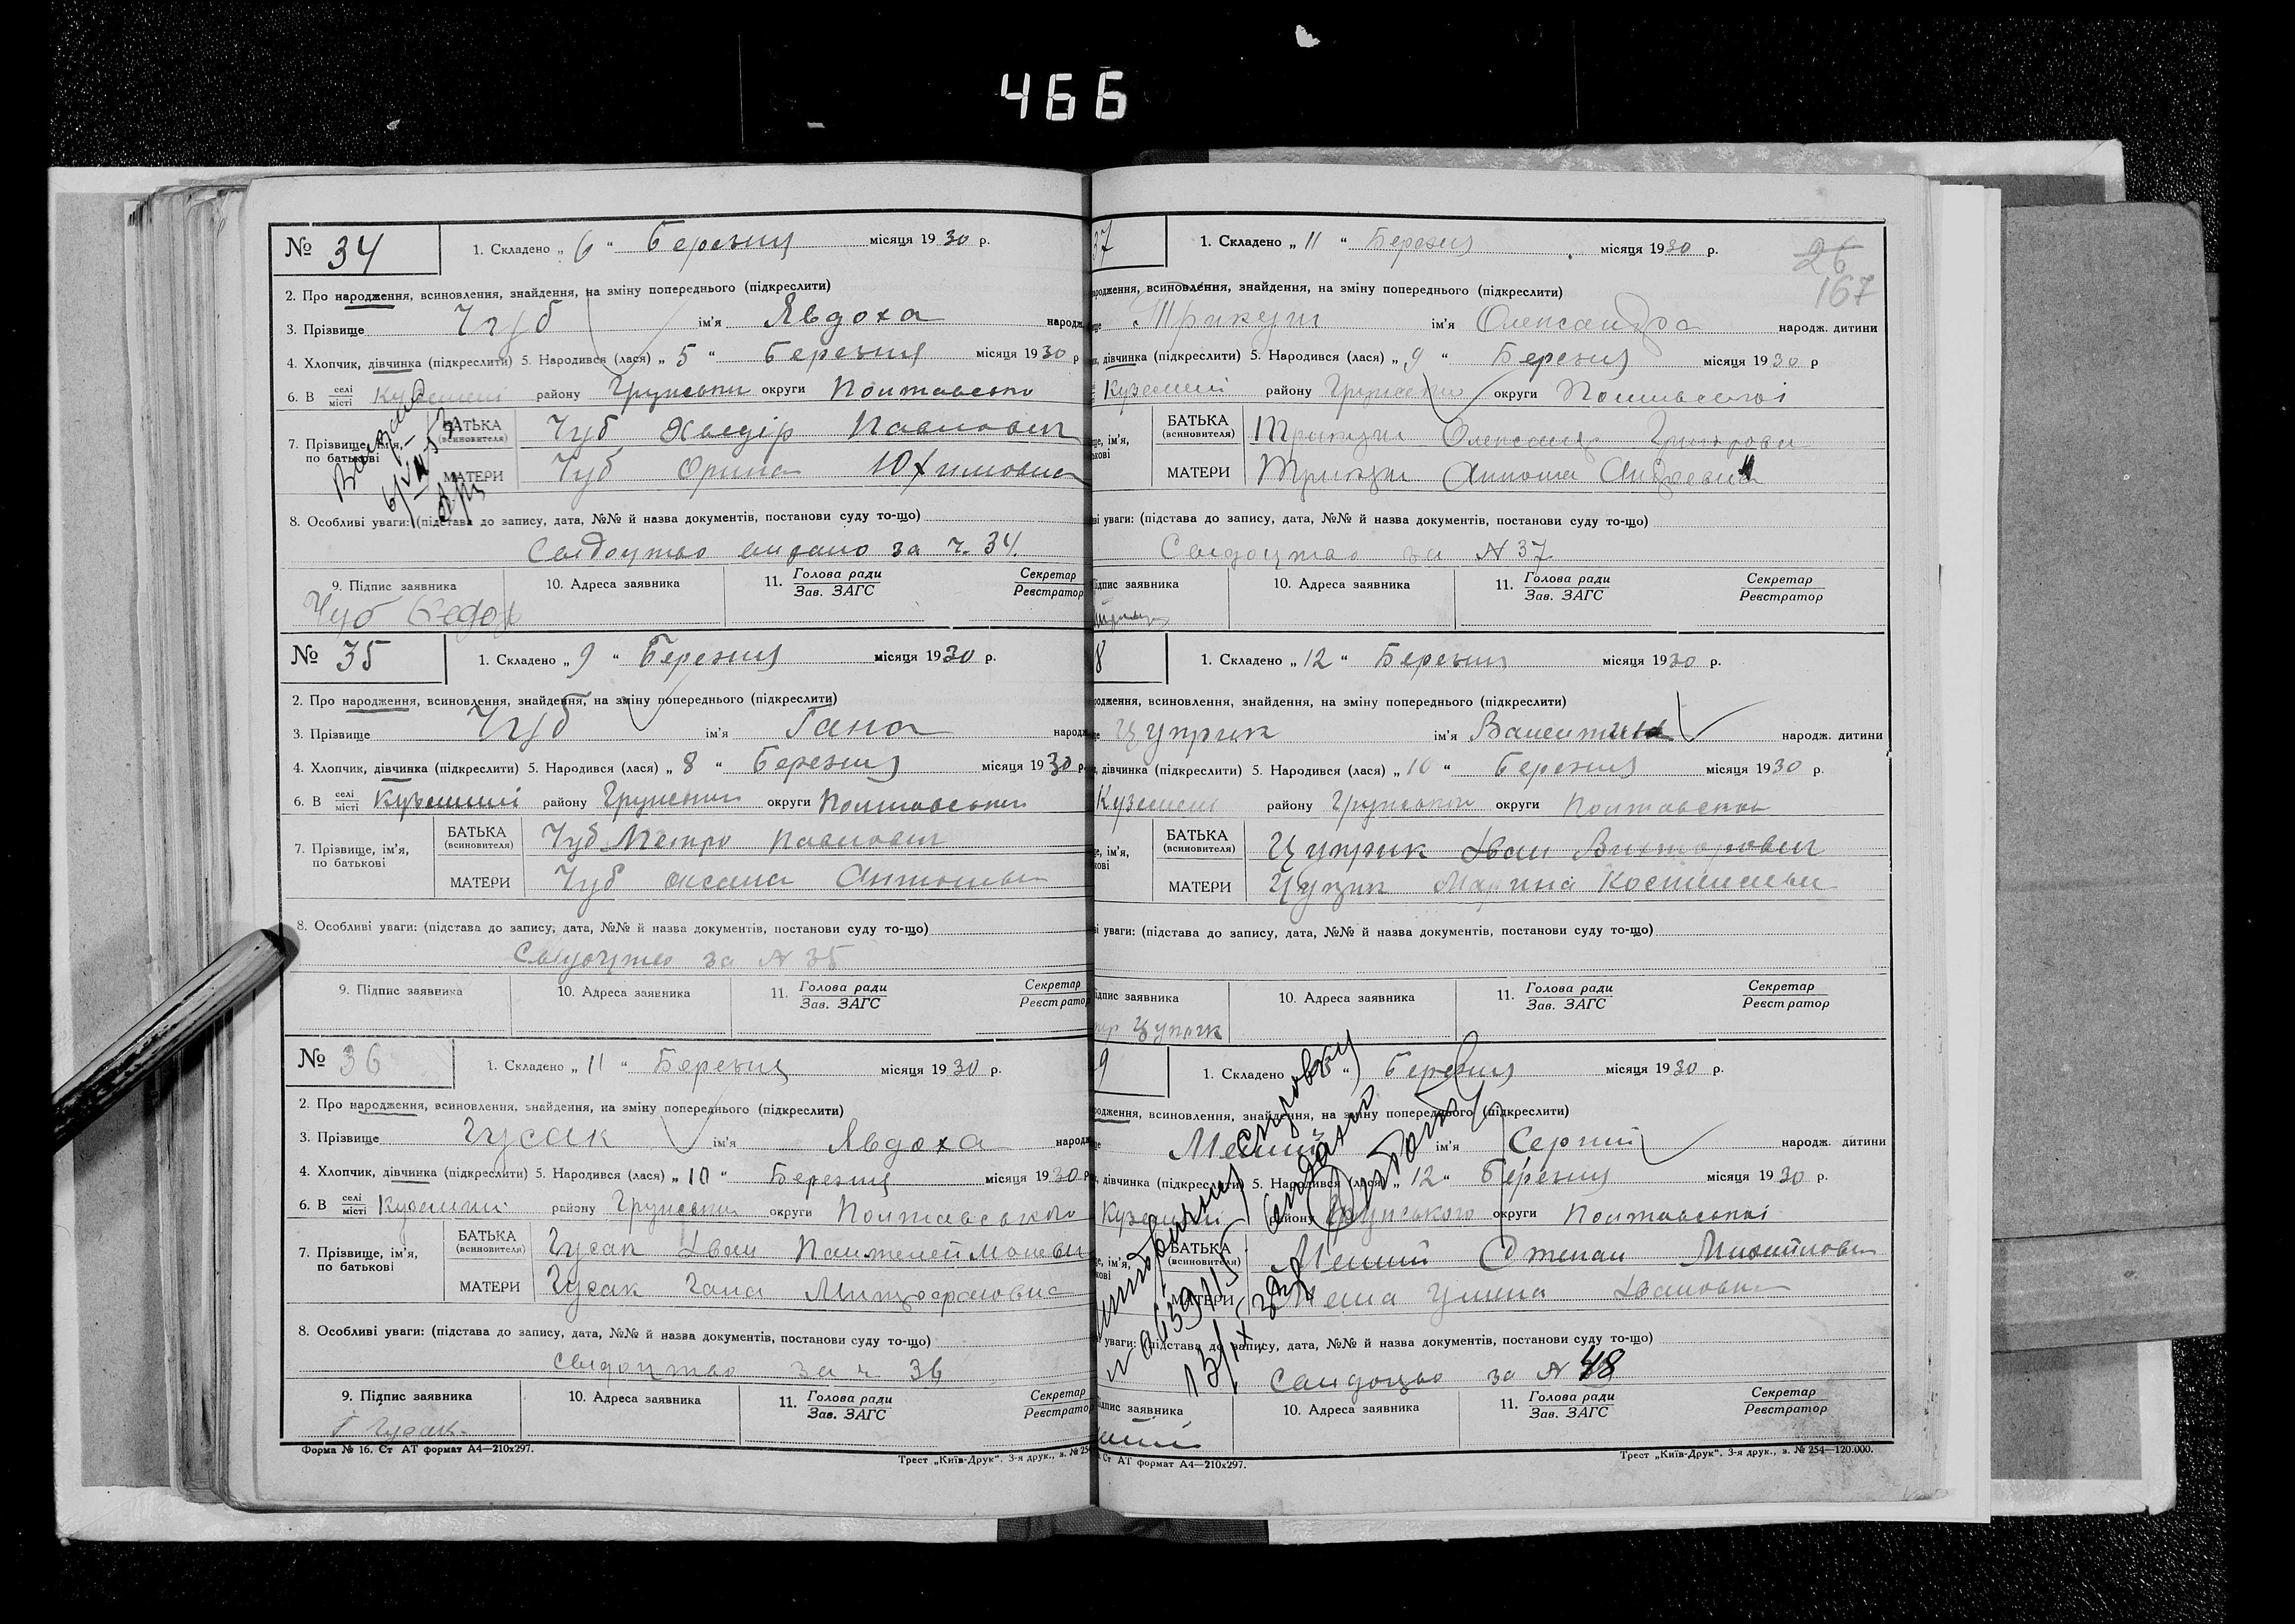 466
№ 34
1. Складено „ 6 “ березня місяця 1930 р.
2. Про народження, всиновлення, знайдення, на зміну попереднього (підкреслити)
3. Прізвище Чуб ім'я Явдоха народж.
4. Хлопчик, дівчинка (підкреслити) 5. Народився (лася) „ 5 “ березня місяця 1930 р
6. В селі/місті району Грунськи округи Полтавсько
7. Прізвище, ім'я, по батькові
БАТЬКА (всиновителя) Чуб Хведір Павлович
МАТЕРИ Чуб Орина Юхимовна
8. Особливі уваги: (підстава до запису, дата, №№ й назва документів, постанови суду то-що)
Свідоцтво видано за ч. 34.
9. Підпис заявника 10. Адреса заявника 11. Голова ради / Зав. ЗАГС Секретар / Реєстратор
Чуб Федор
№ 35
1. Складено „ 9 “ Березня місяця 1930 р.
2. Про народження, всиновлення, знайдення, на зміну попереднього (підкреслити)
3. Прізвище Чуб ім'я Гана народж
4. Хлопчик, дівчинка (підкреслити) 5. Народився (лася) „ 8 “ Березня місяця 1930 р.
6. В селі/місті Куземині району Грунськи округи Полтавськи
7. Прізвище, ім'я, по батькові
БАТЬКА (всиновителя) Чуб Петро Павлович
МАТЕРИ Чуб Оксана Антоновн
8. Особливі уваги: (підстава до запису, дата, №№ й назва документів, постанови суду то-що)
Свідоцтво за N 35
9. Підпис заявника 10. Адреса заявника 11. Голова ради / Зав. ЗАГС Секретар / Реєстратор
№ 36
1. Складено „ 11 “ Березня місяця 1930 р.
2. Про народження, всиновлення, знайдення, на зміну попереднього (підкреслити)
3. Прізвище Гусак ім'я Явдоха народж
4. Хлопчик, дівчинка (підкреслити) 5. Народився (лася) „ 10 “ Березня місяця 1930 р
6. В селі/місті Куземини району Грунськи округи Полтавського
7. Прізвище, ім'я, по батькові
БАТЬКА (всиновителя) Гусак Іван Пантелеймонови
МАТЕРИ Гусак Гана Митрофановна
8. Особливі уваги: (підстава до запису, дата, №№ й назва документів, постанови суду то-що)
Свідоцтво за ч 36
9. Підпис заявника 10. Адреса заявника 11. Голова ради / Зав. ЗАГС Секретар / Реєстратор
Гусак
Форма № 16. Ст АТ формат А4—210х297.
Трест „Київ-Друк“. 3-я друк., з. № 254
37
1. Складено „ 11 “ Березня місяця 1930 р.
26
167
ародження, всиновлення, знайдення, на зміну попереднього (підкреслити)
Трикуш ім'я Олександра народж. дитини
, дівчинка (підкреслити) 5. Народився (лася) „ 9 “ Березня місяця 1930 р
Куземені району округи Полтавської
БАТЬКА (всиновителя)
МАТЕРИ
ві уваги: (підстава до запису, дата, №№ й назва документів, постанови суду то-що)
Свідоцтво за N 37
ідпис заявника 10. Адреса заявника 11. Голова ради / Зав. ЗАГС Секретар / Реєстратор
8
1. Складено „ 12 “ Березня місяця 1930 р.
родження, всиновлення, знайдення, на зміну попереднього (підкреслити)
Цуприк ім'я Валентина народж. дитини
, дівчинка (підкреслити) 5. Народився (лася) „ 10 “ Березня місяця 1930 р.
Куземені району Грунської округи Полтавської
БАТЬКА (всиновителя) Цуприк Іван Вихторович
МАТЕРИ Марина
ві уваги: (підстава до запису, дата, №№ й назва документів, постанови суду то-що)
ідпис заявника 10. Адреса заявника 11. Голова ради / Зав. ЗАГС Секретар / Реєстратор
9
1. Складено Березня місяця 1930 р.
одження, всиновлення, знайдення, на зміну попереднього (підкреслити)
ім'я Сергий народж. дитини
, дівчинка (підкреслити) 5. Народився (лася) „ 12 “ Березня місяця 1930 р.
району Грунського округи Полтавської
БАТЬКА (всиновителя) Степан Михайлови
МАТЕРИ Улина Івановна
уваги: (підстава до запису, дата, №№ й назва документів, постанови суду то-що)
за N 48
ідпис заявника 10. Адреса заявника 11. Голова ради / Зав. ЗАГС Секретар / Реєстратор
Ст АТ формат А4—210х297.
Трест „Київ-Друк“. 3-я друк., з. № 254—120.000.